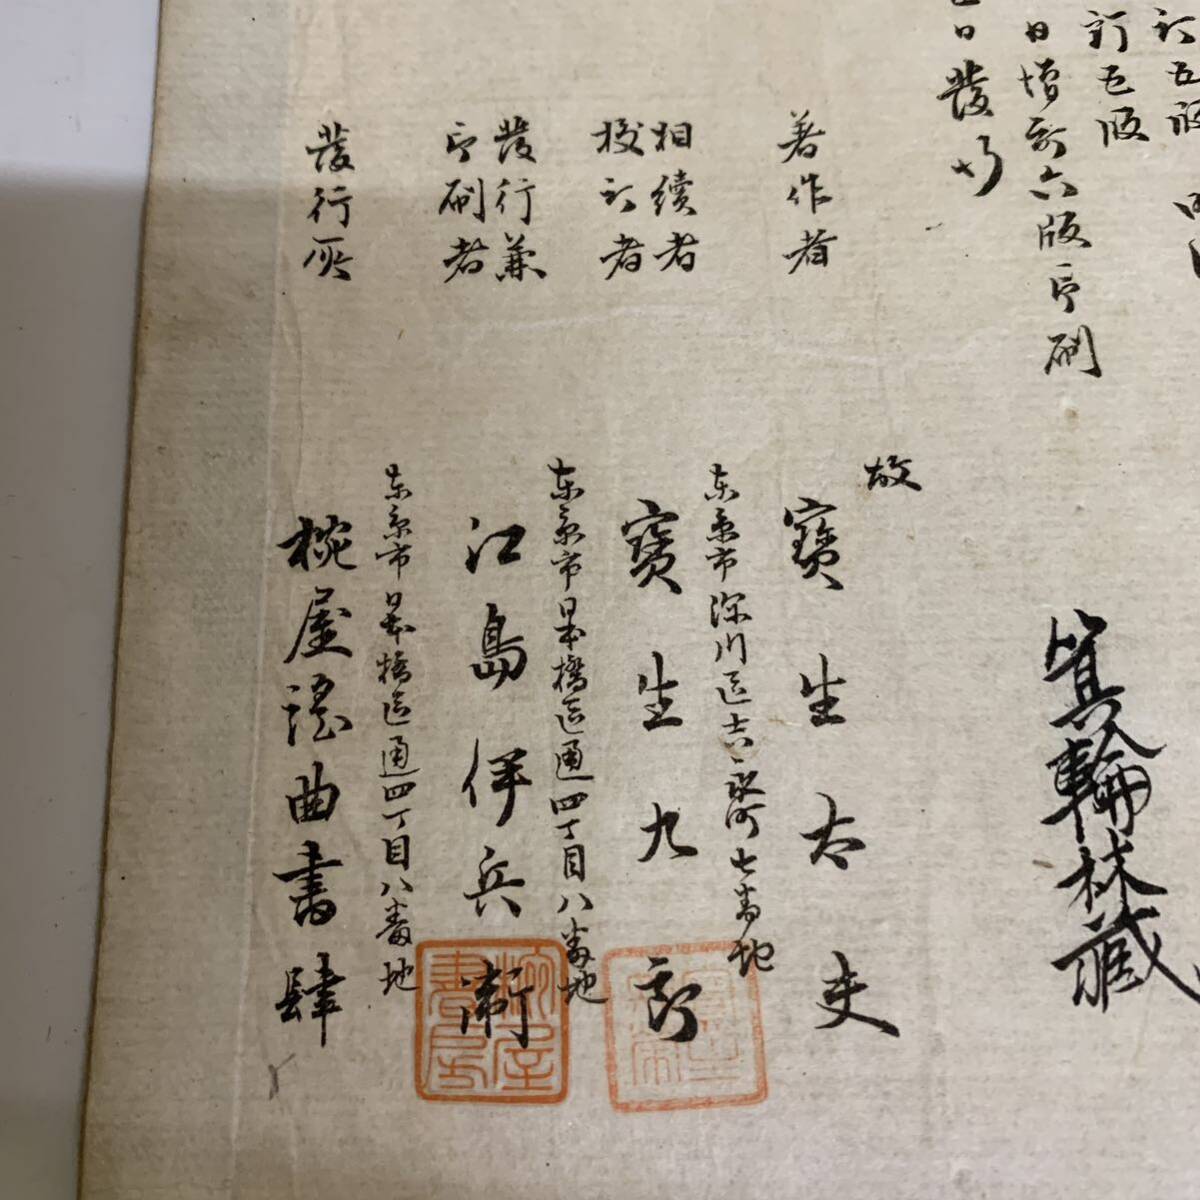 訂五版
訂五版
日増訂六版印刷
日發行
箕輪林藏
著作者
故
寶生太夫
相續者
校訂者
東京市深川區吉永町七番地
寶生九郎
發行兼
印刷者
東京市日本橋區通四丁目八番地
江島伊兵衛
發行所
東京市日本橋區通四丁目八番地
椀屋謡曲書肆
椀屋
書房